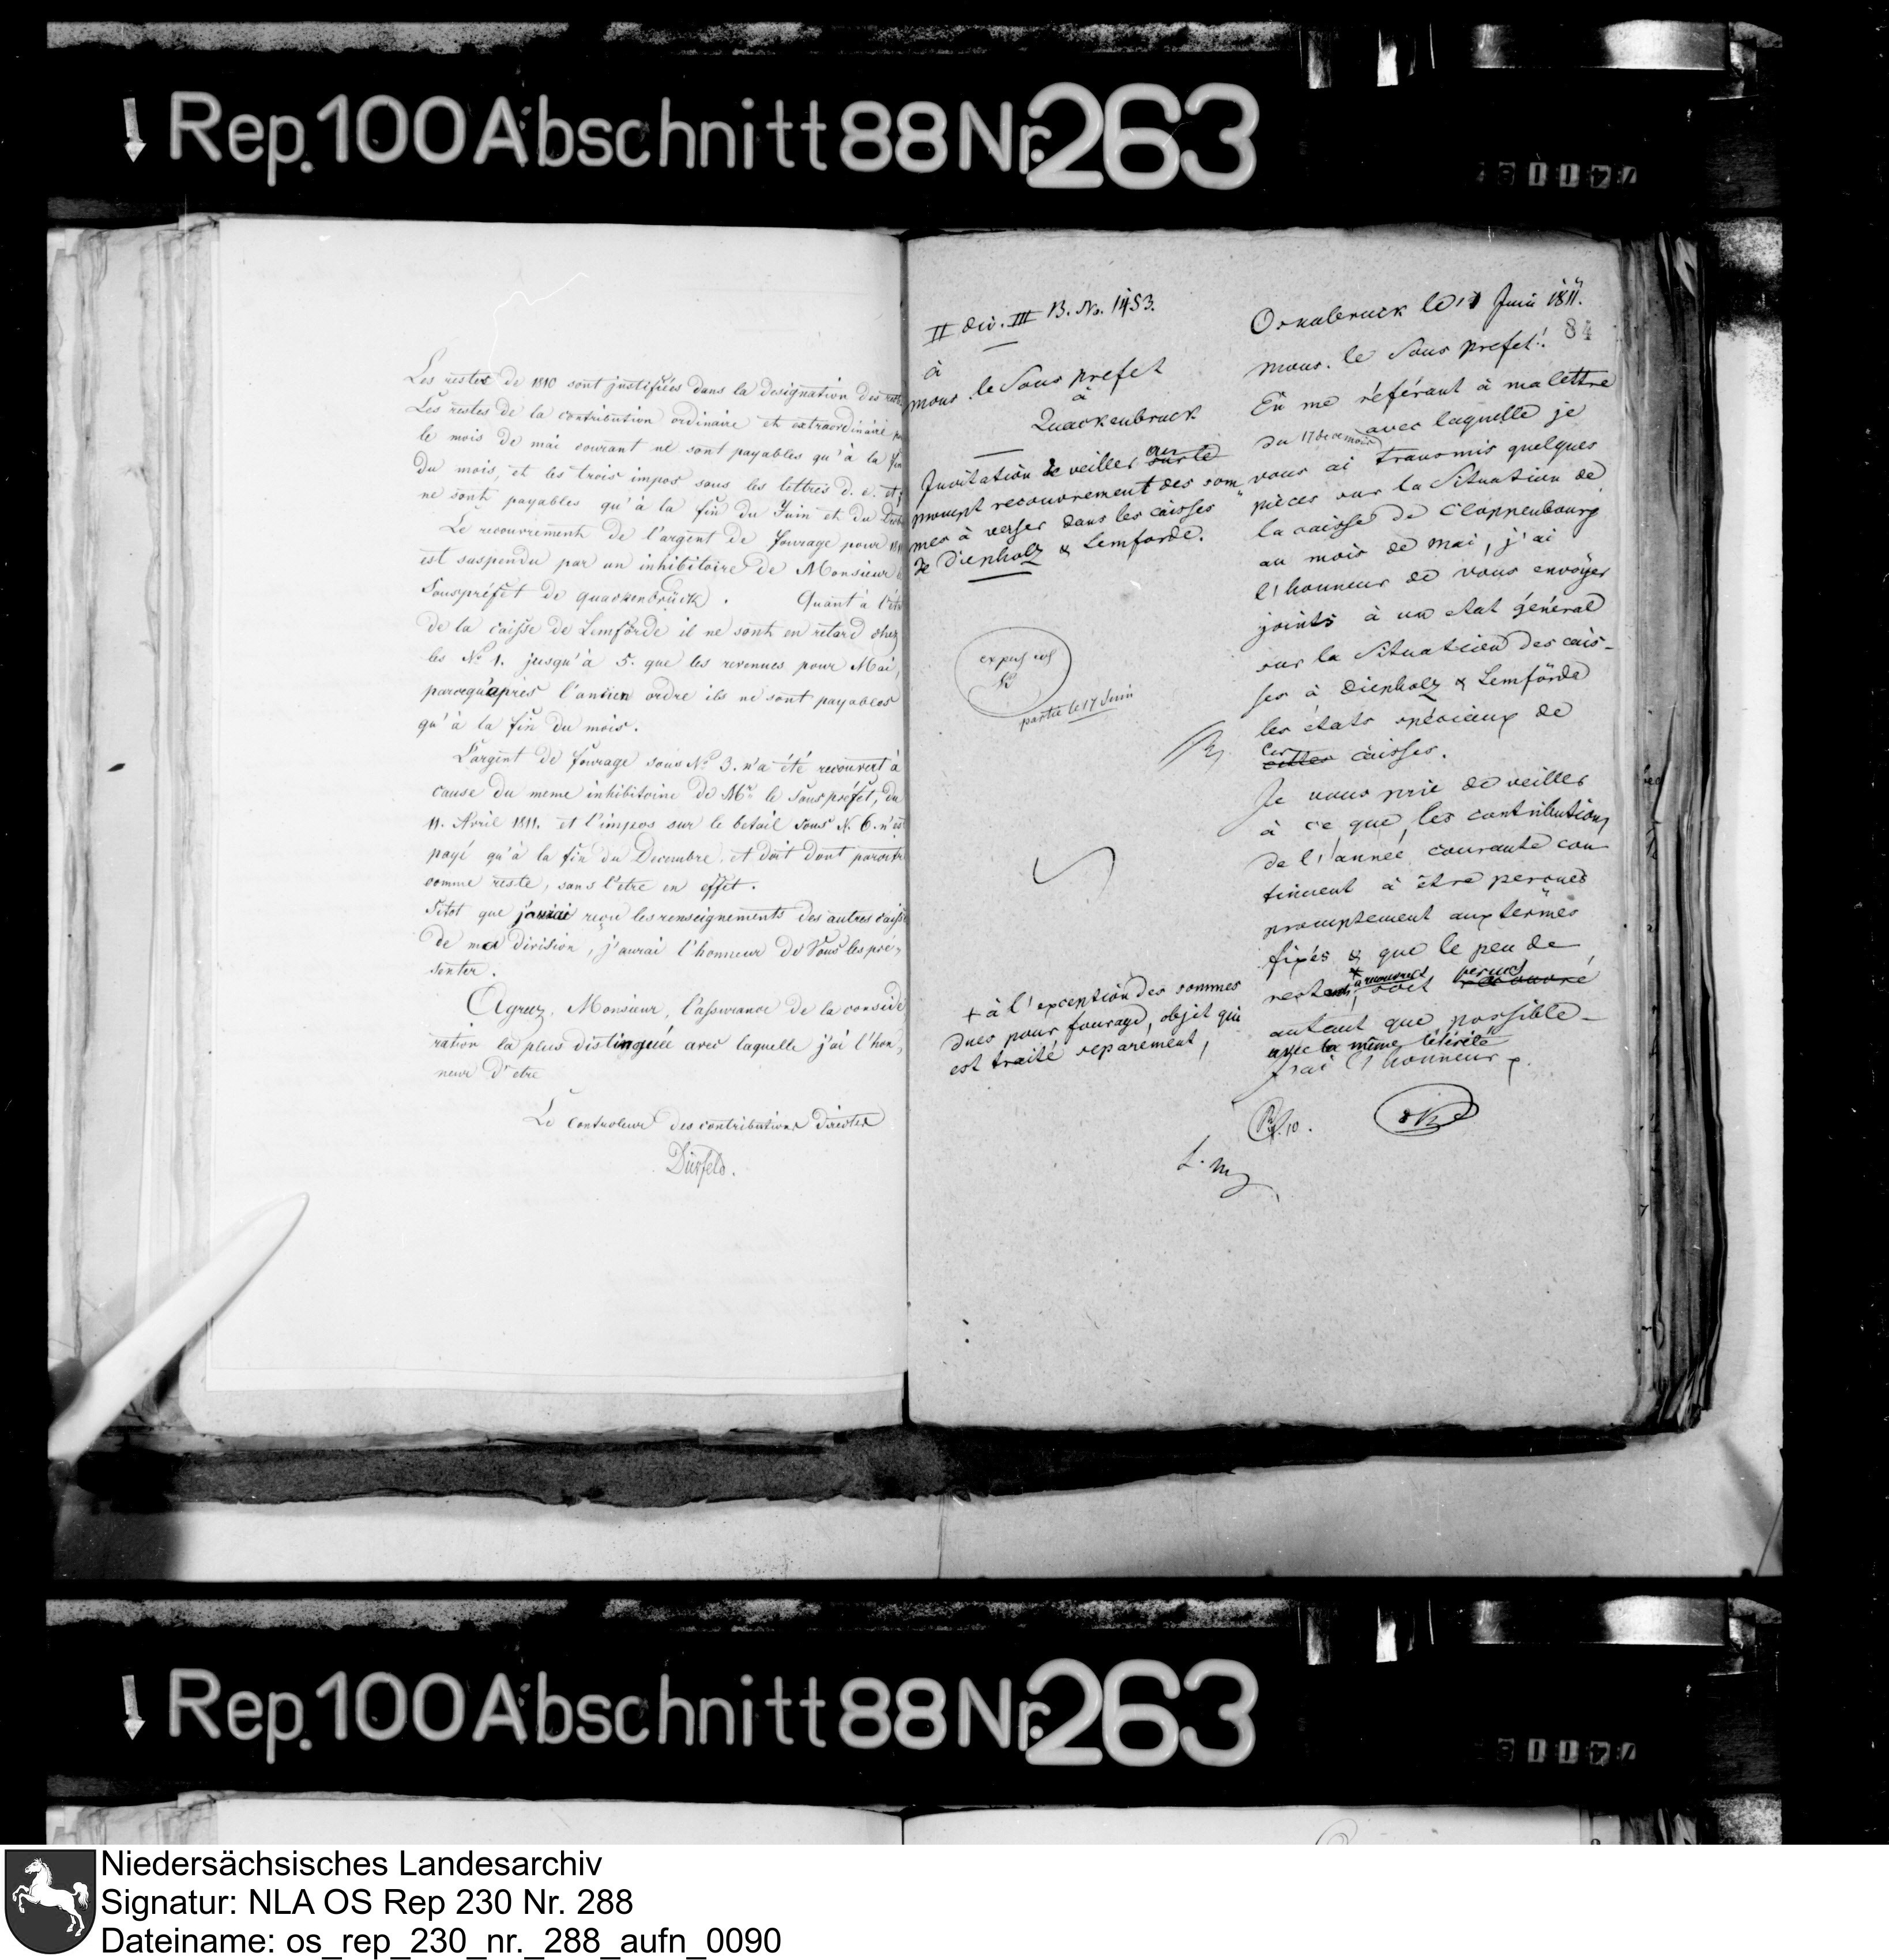 Rep. 100 Abschnitt 88 Nr. 263
Les restes de 1810 sont justifiées dans la designation des
Les restes de la contribution ordinaire et extraordinaire
le mois de mai courant ne sont payables qu'à la fin
du mois, et les trois impos sous les lettres d. e. et
ne sont payables qu'à la fin du Juin et du
Le recouvrement de l'argent de fourage pour
est suspendu par un inhibitoire de Monsieur
Souspréfet de quackenbrück. Quant à l'
de la caisse de Lemförde il ne sont en retard chez
les No 1. jusqu'à 5. que les revenues pour Mai,
parcequ'après l'antien ordre ils ne sont payables
qu'à la fin du mois.
L'argent de fourage sous No 3. n'a été recouvert à
cause du meme inhibitoire de Mr le Sousprefet, du
11. Avril 1811. et l'impos sur le betail sous N. 6. n'est
payé qu'à la fin du Decembre et doit dont paroitre
comme reste, sans l'etre en effet.
Sitot que j'aurai reçu les renseignements des autres caisse
de ma division, j'aurai l'honneur de Vous les pré-
senter.
Agreez, Monsieur, l'assurance de la conside
ration la plus distinguée avec laquelle j'ai l'hon,
neur d'etre
Le controleur des contributions directes
Dürfeld.
II div. III B. No. 1453.
à
mons. le Sous prefet
à
Quackenbruck
Invitation de veiller au sur le
prompt recouvrement des som
mes à verser dans les caisses
de Diepholz & Lemforde.
partie le 17 Juin
+ à l'exception des sommes
dues pour fourage, objet qui
est traité separement,
Osnabruck le 11 Juin 1811.
84
mons. le Sous prefet!
En me référant à ma lettre
du 17 de ce mois avec laquelle je
vous ai transmis quelques
pièces sur la Situation de
la caisse de Cloppenbourg
au mois de mai, j'ai
l'honneur de vous envoyer
joints à un etat général
sur la Situation des cais-
ses à Diepholz & Lemförde
les états spéciaux de
ces cettes caisses.
Je vous prie de veiller
à ce que les contributions
de l'année courante con
tinuent à être percues
promptement aux termes
fixés & que le peu de
restes soit percus recouvré
autant que possible
avec la même célérité
J'ai l'honneur p.
Rep. 100 Abschnitt 88 Nr. 263
Niedersächsisches Landesarchiv
Signatur: NLA OS Rep 230 Nr. 288
Dateiname: os_rep_230_nr._288_aufn_0090